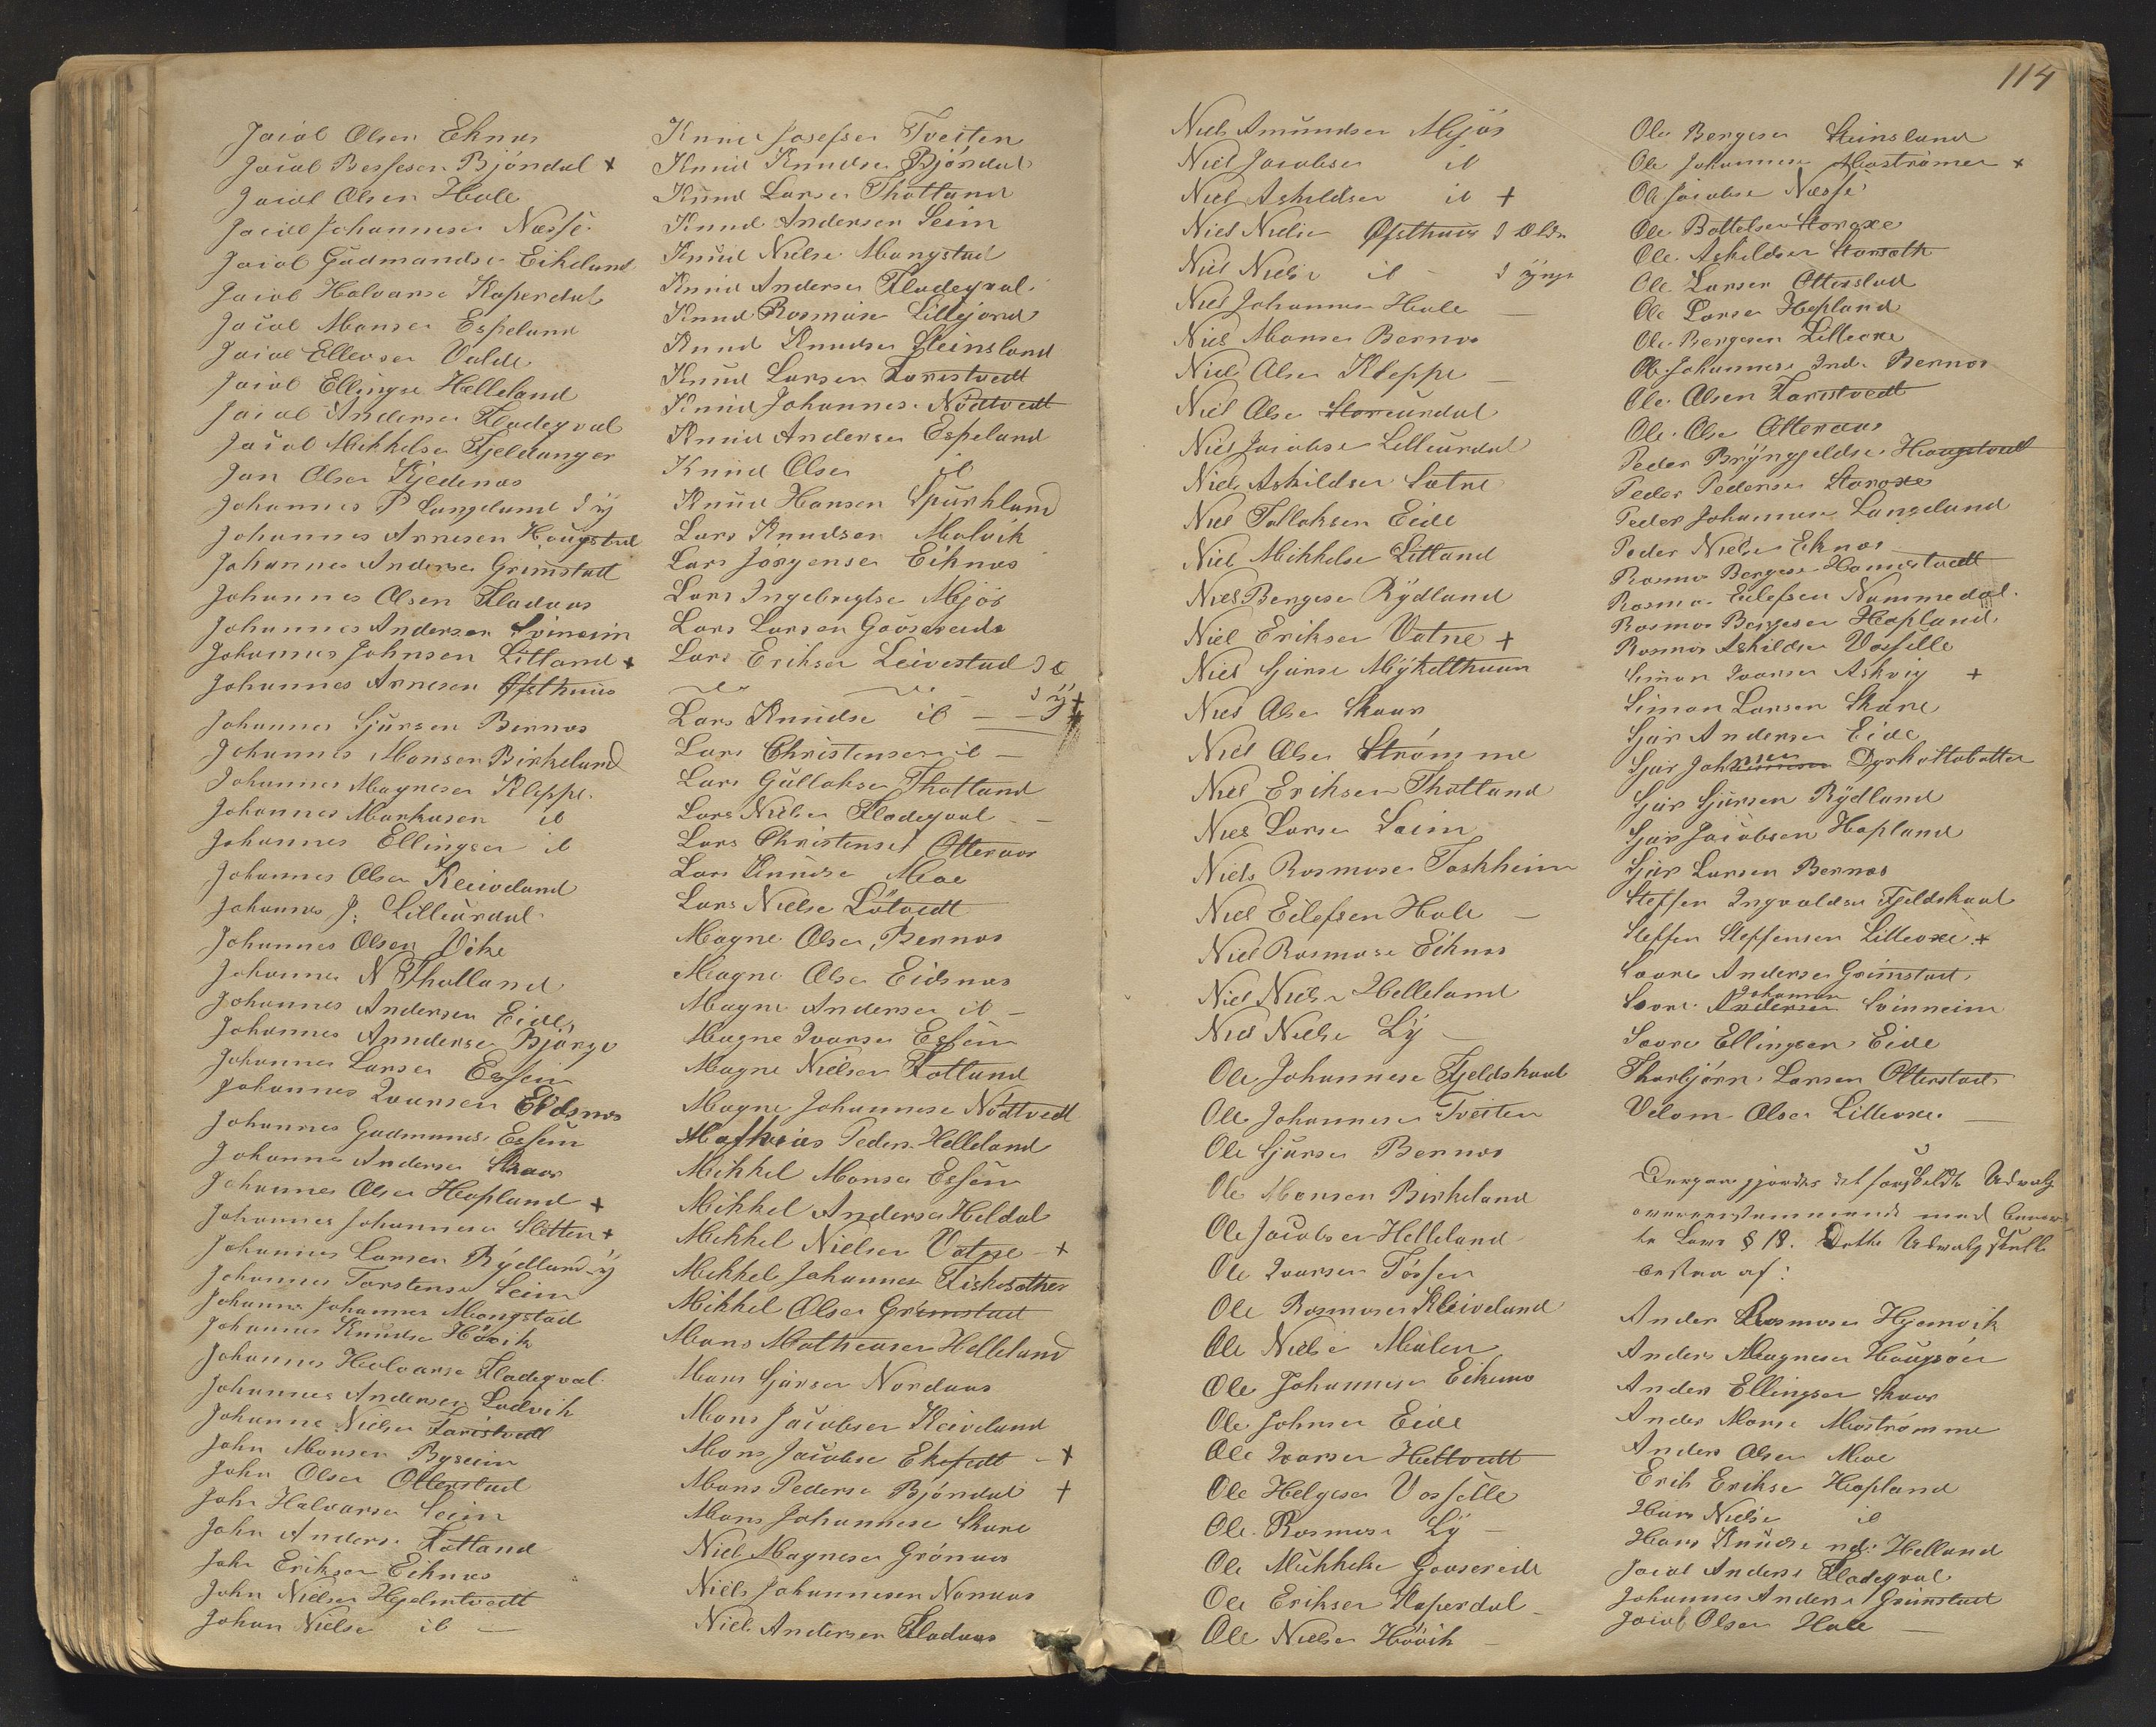 Jacob Olsen Eknæs
Jacob Bessesen Bjöndal +
Jacob Olsen Hole
Jacob Johannesen Næsse
Jacob Gudmandsen Eikeland
Jacob Halvorse Kaperdal
Jacob Monsen Espeland
Jacob Ellevsen Valde
Jacob Ellingse Helleland
Jacob Andersen Fladeqval
Jacob Mikkelse Fjeldanger
Jan Olsen Kjedenæs
Johannes P Langeland d y
Johannes Arnesen Hougstad
Johannes Andersen Grimstad
Johannes Olsen Fladaas
Johannes Andersen Svineim
Johannes Johnsen Litland +
Johannes Arnesen Øfsthuus
Johannes Sjursen Bernæs
Johannes Monsen Birkeland
Johannes Magnesen Kleppe
Johannes Markusen id
Johannes Ellingsen id
Johannes Olsen Kleiveland
Johannes J: Lilleurdal
Johannes Olsen Vike
Johannes N Tholland
Johannes Andersen Eide
Johannes Annderse Bjorge
Johannes Larsen Essem
Johannes Ivarsen Eidsnes
Johannes Gudmunds. Essem
Johannes Andersen Skaar
Johannes Olsen Hopland +
Johannes Johannesen Sletten +
Johannes Larsen Rydland y
Johannes Torstense Seim
Johannes Johannes Mongstad
Johannes Knudse Haavik
Johannes Halvorse Fladeqval
Johannes Andersen Ladvik
Johanne Nielsen Farestvedt
John Monsen Byseim
John Olsen Otterstad
John Halvorsen Seim
John Anders. Fotland
John Eriksen Eiknæs
John Nielsen Hjelmtvedt
Johan Nielse id —
Knud Josefsen Tveiten
Knud Knudsen Bjöndal
Knud Larsen Thotland
Knud Andersen Seim
Knud Nielse Mongstad
Knud Andersen Fladeqval
Knud Rasmuse Lillejord
Knud Knudsen Steinsland
Knud Larsen Farestvedt
Knud Johannes. Nödtvedt
Knud Andersen Espeland
Knud Olsen id
Knud Hansen Spurkland
Lars Knudsen Molvik
Lars Jörgense Eiknæs
Lars Ingebregtse Mjös
Lars Larsen Gaasereide
Lars Eriksen Leivestad d e
d y +
Lars Knudse id — —
Lars Christensen id —
Lars Gullakse Thotland
Lars Nielsen Fladeqval —
Lars Christensen Otteraas
Lars Knudse Moe
Lars Nielse Lötvedt
Magne Olsen Bernæs
Magne Olsen Eidsnæs
Magne Andersen id —
Magne Ivarsen Essem
Magne Nielsen Fotland
Magne Johannese Nödtvedt
Mathias Peders. Helleland
Mikkel Monsen Essem
Mikkel Andersen Heldal
Mikkel Nielsen Vatne +
Mikkel Johannes Fiskesæther
Mikkel Olsen Grimstad
Mons Matheusen Helleland
Mons Sjursen Nordaas
Mons Jacobsen Kleiveland
Mons Jacobse — +
Mons Pederse Bjöndal +
Mons Johannese Skare
Niels Magnesen Grönaas
Niels Johannesen Nonaas
Niels Andersen Fladaas
114
Niels Amundsen Mjös
Niels Jacobsen id
Niels Askildsen id +
Niels Nielse Øfsthuus d Eldr
Niels Nielse id — d yngr
Niels Johannes Hole —
Niels Monsen Bernæs
Niels Olsen Kleppe —
Niels Olse Storeurdal
Niels Jacobse Lilleurdal
Niels Askildsen Sætre
Niels Tollaksen Eide
Niels Mikkelse Litland
Niels Bergese Rydland
Niels Eriksen Vatne +
Niels Sjurse Mykelthuun
Niels Olse Skaar
Niels Olsen Strömme
Niels Eriksen Thotland
Niels Larse Seim
Niels Rasmuse Toskheim
Niels Eilefsen Hole —
Niels Rasmuse Eiknæs
Niels Nielse Helleland
Niels Nielse Ly
Ole Johannese Fjeldskaal
Ole Johannesen Tveiten
Ole Sjursen Bernæs
Ole Monsen Birkeland
Ole Jacobsen Helleland
Ole Ivarsen Tössen
Ole Rasmusen Kleiveland
Ole Nielse Mulen
Ole Johannese Eiknæs
Ole Johnsen Eide
Ole Ivarsen Heltvedt
Ole Helgesen Vasselle
Ole Rasmuse Ly —
Ole Mikkelse Gaasereide
Ole Eriksen Kaperdal —
Ole Nielse Haavik —
Ole Bergesen Steinsland
Ole Johannes Mostrømmen +
Ole Jacobse Næsse
Ole Bottelsen Storoxe
Ole Askildsen Storsæth
Ole Larsen Otterstad
Ole Larsen Hopland
Ole Bergesen Lilleoxe
Ole Johannese Ind. Bernæs
Ole Olsen Farestvedt
Ole Olse Otteraas
Peder Brÿngjeldse Hougstvedt
Peder Pederse Storoxe
Peder Johannes Langeland
Peder Nielse Eknæs
Rasmus Bergese Hannestvedt
Rasmus Eilefsen Nummedal
Rasmus Bergesen Hopland
Rasmus Askildse Vasselle
Simon Ivarsen Askvig +
Simon Larsen Skare
Sjur Andersen Eide
Sjur Johnsen Dyrkolbotten
Sjur Sjursen Rydland
Sjur Jacobsen Hopland
Sjur Larsen Bernæs
Steffen Ingvaldsen Fjeldskaal
Steffen Steffensen Lilleoxe +
Saave Andersen Grimstad
Johannes
Saave Andersen Svinneim
Saave Ellingsen Eide
Thorbjörn Larsen Otterstad
Velom Olsen Lilleoxe. —
Derpaa gjordes det særskildte Udvalg
overeensstemmende med
te Lovs § 18. Dette Udvalg skulle
bestaa af:
Anders Rasmuse Hjemvik
Anders Magnesen Hougsöen
Anders Ellingsen Skaar
Anders Monse Moströmme
Anders Olsen Moe
Erik Eriksen Hopland
Hans Nielse id
Hans Knudse nd: Helland
Jacob Anderse Fladeqval
Johannes Anderse Grimstad
Jacob Olsen Hole —